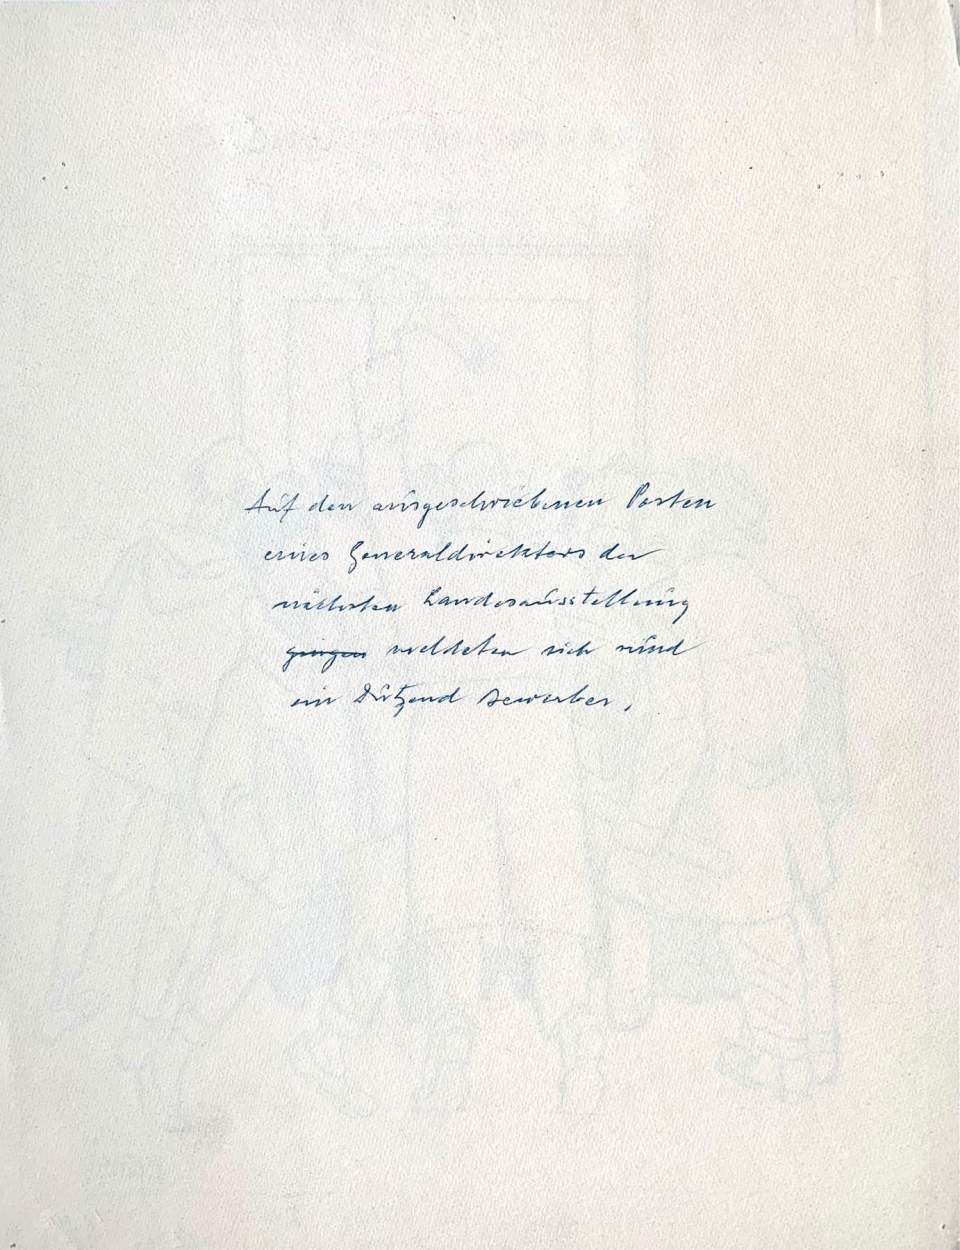 Auf den ausgeschriebenen Posten
eines Generaldirektors der
nächsten Landesausstellung
gingen meldeten sich rund
ein Dutzend Bewerber,